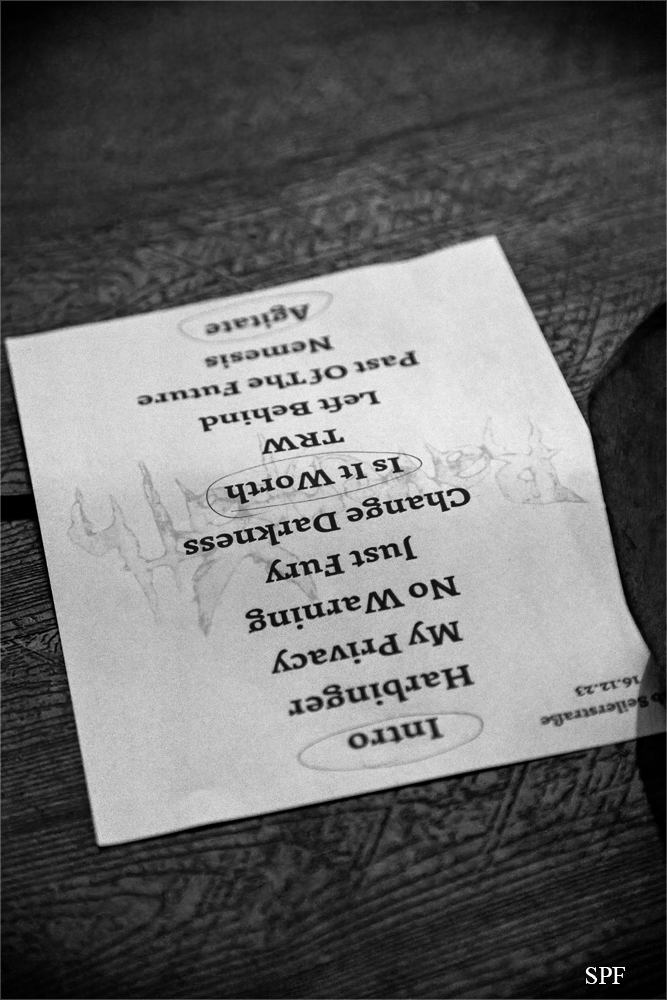 Seilerstraße
16.12.23
Intro
Harbinger
My Privacy
No Warning
Just Fury
Change Darkness
Is It Worth
TRW
Left Behind
Past Of The Future
Nemesis
Agitate
SPF